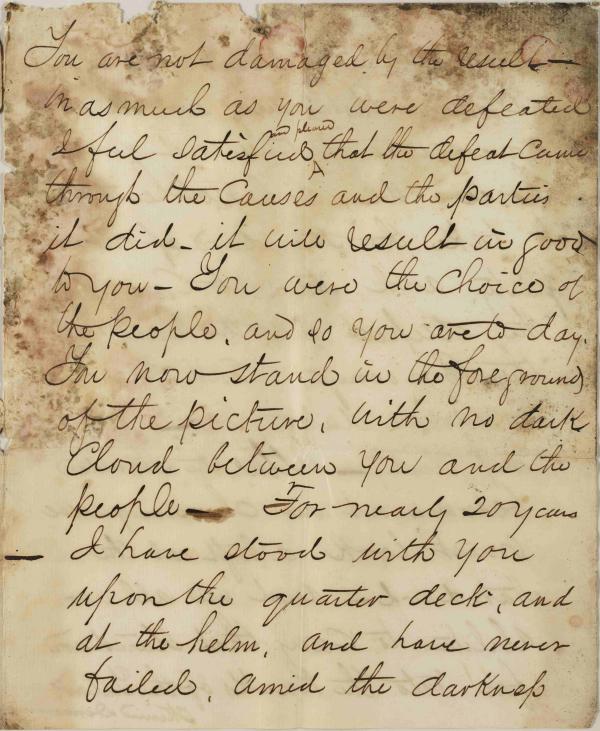 You are not damaged by the result—
in as much as you were defeated
I feel satisfied and pleased that the defeat came
through the Causes and the parties
it did - it will result in good
to you - You were the Choice of
the people, and so you are to day.
You now stand in the foreground
of the picture, with no dark
Cloud between you and the
people — For nearly 20 years
I have stood with you
upon the quarter deck, and
at the helm, and have never
failed, amid the darkness